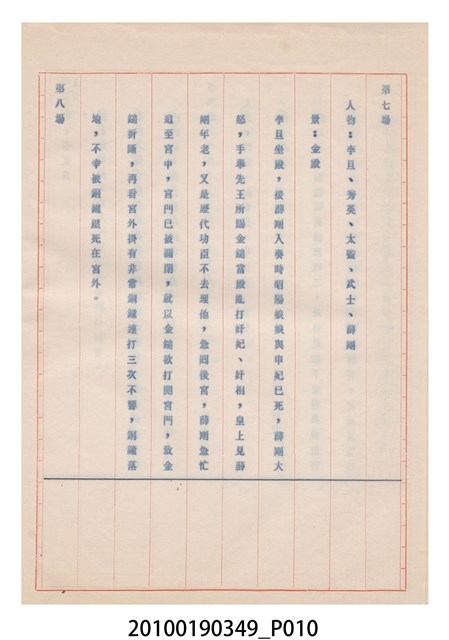 第七場
人物：李旦、秀英、太監、武士、薛剛
景：金殿
李旦坐殿，接薛剛入奏時昭陽娘娘與申妃已死，薛剛大
怒，手擧先王所賜金鎚當殿亂打奸妃、奸相，皇上見薛
剛年老，又是歷代功臣不去理他，急囘後宮，薛剛急忙
追至宮中，宮門已被關閉，就以金鎚欲打開宮門，致金
鎚折斷，再看宮外掛有非常銅鐘連打三次不響，銅鐘落
地，不幸被銅鐘壓死在宮外。
第八場
20100190349_P010